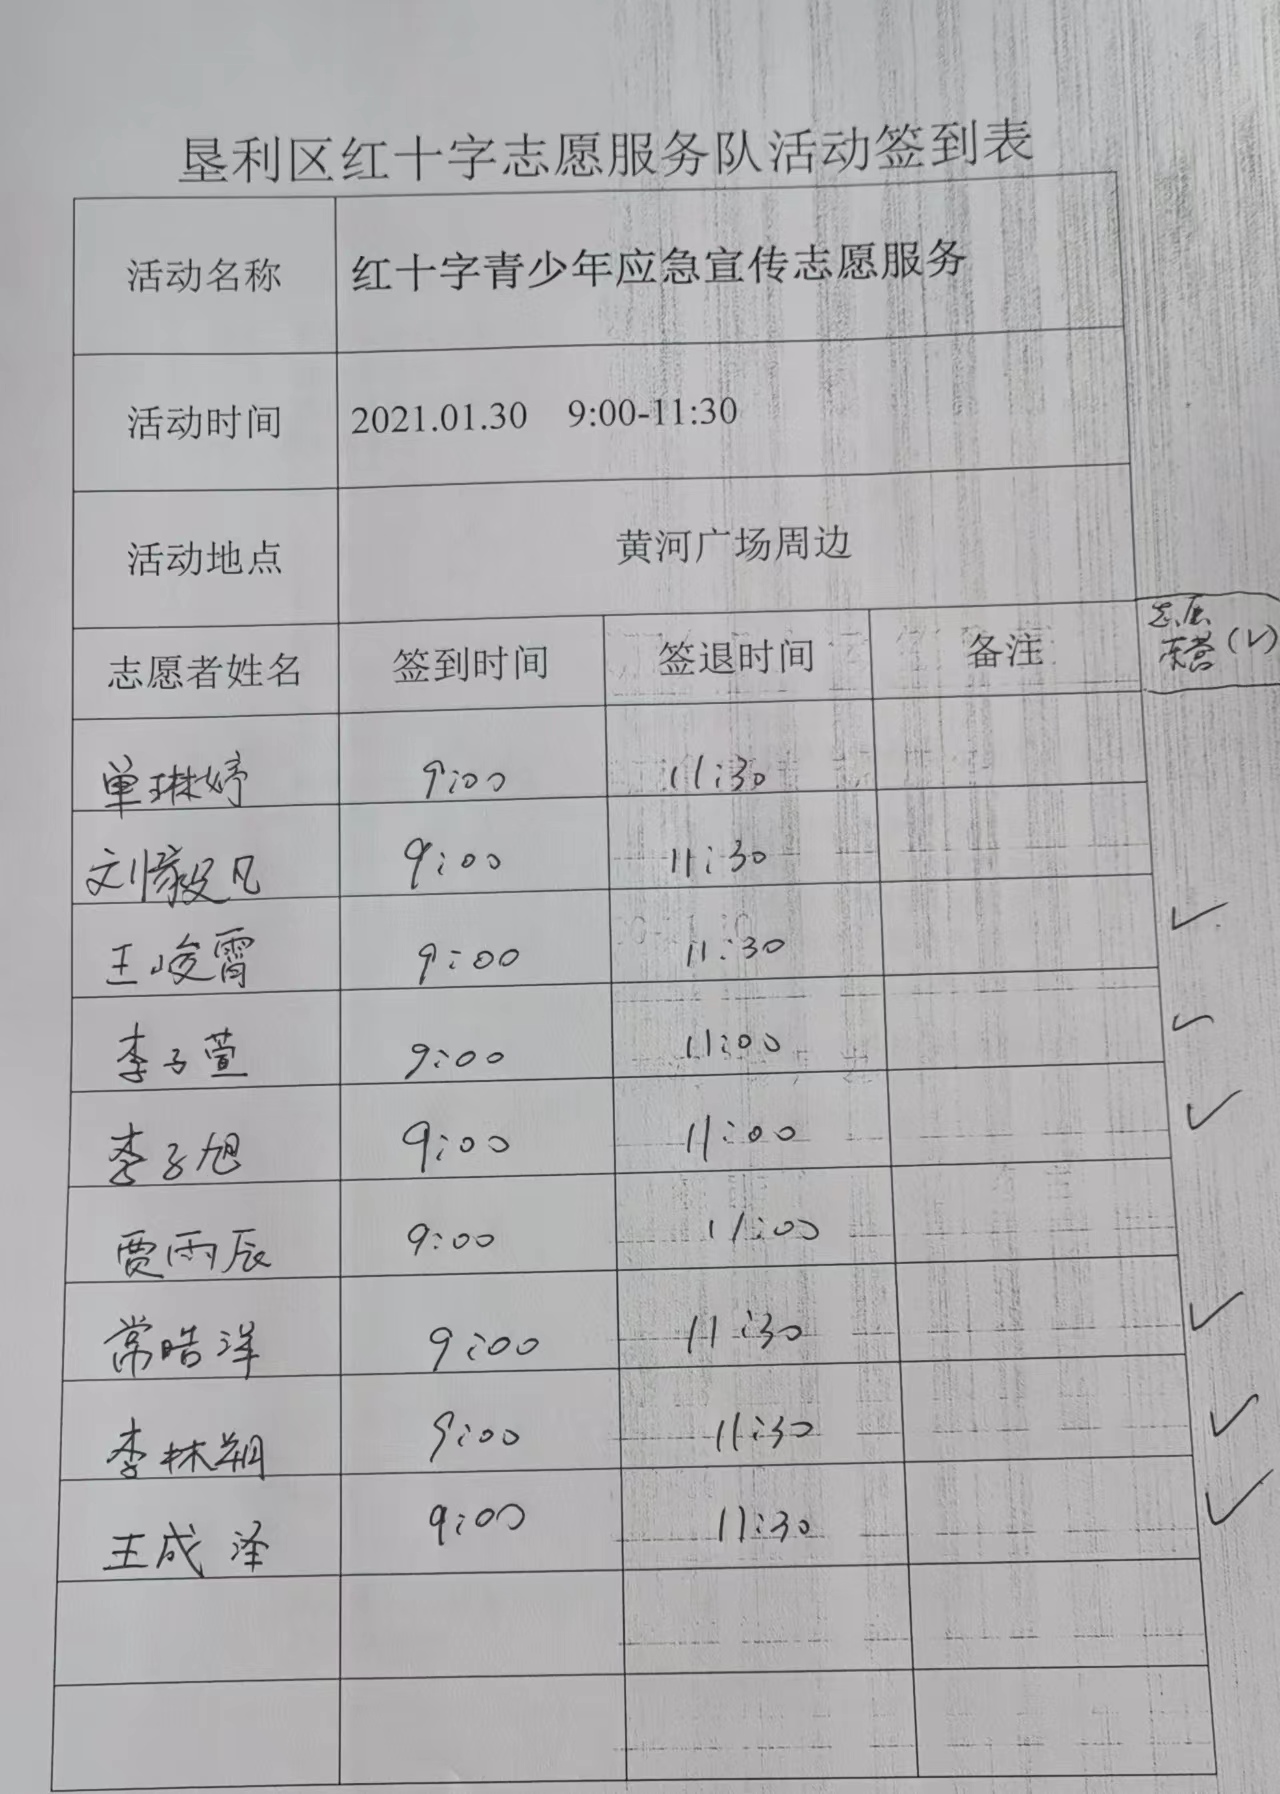 垦利区红十字志愿服务队活动签到表
活动名称 红十字青少年应急宣传志愿服务
活动时间 2021.01.30 9:00-11:30
活动地点 黄河广场周边
志愿者姓名 签到时间 签退时间 备注 志愿
东营(√)
单琳婷 9:00 11:30
刘毅凡 9:00 11:30
王峻霄 9:00 11:30 ✓
李子萱 9:00 11:00 ✓
李子旭 9:00 11:00 ✓
贾雨辰 9:00 11:00
常皓洋 9:00 11:30 ✓
李林朔 9:00 11:30 ✓
王成泽 9:00 11:30 ✓